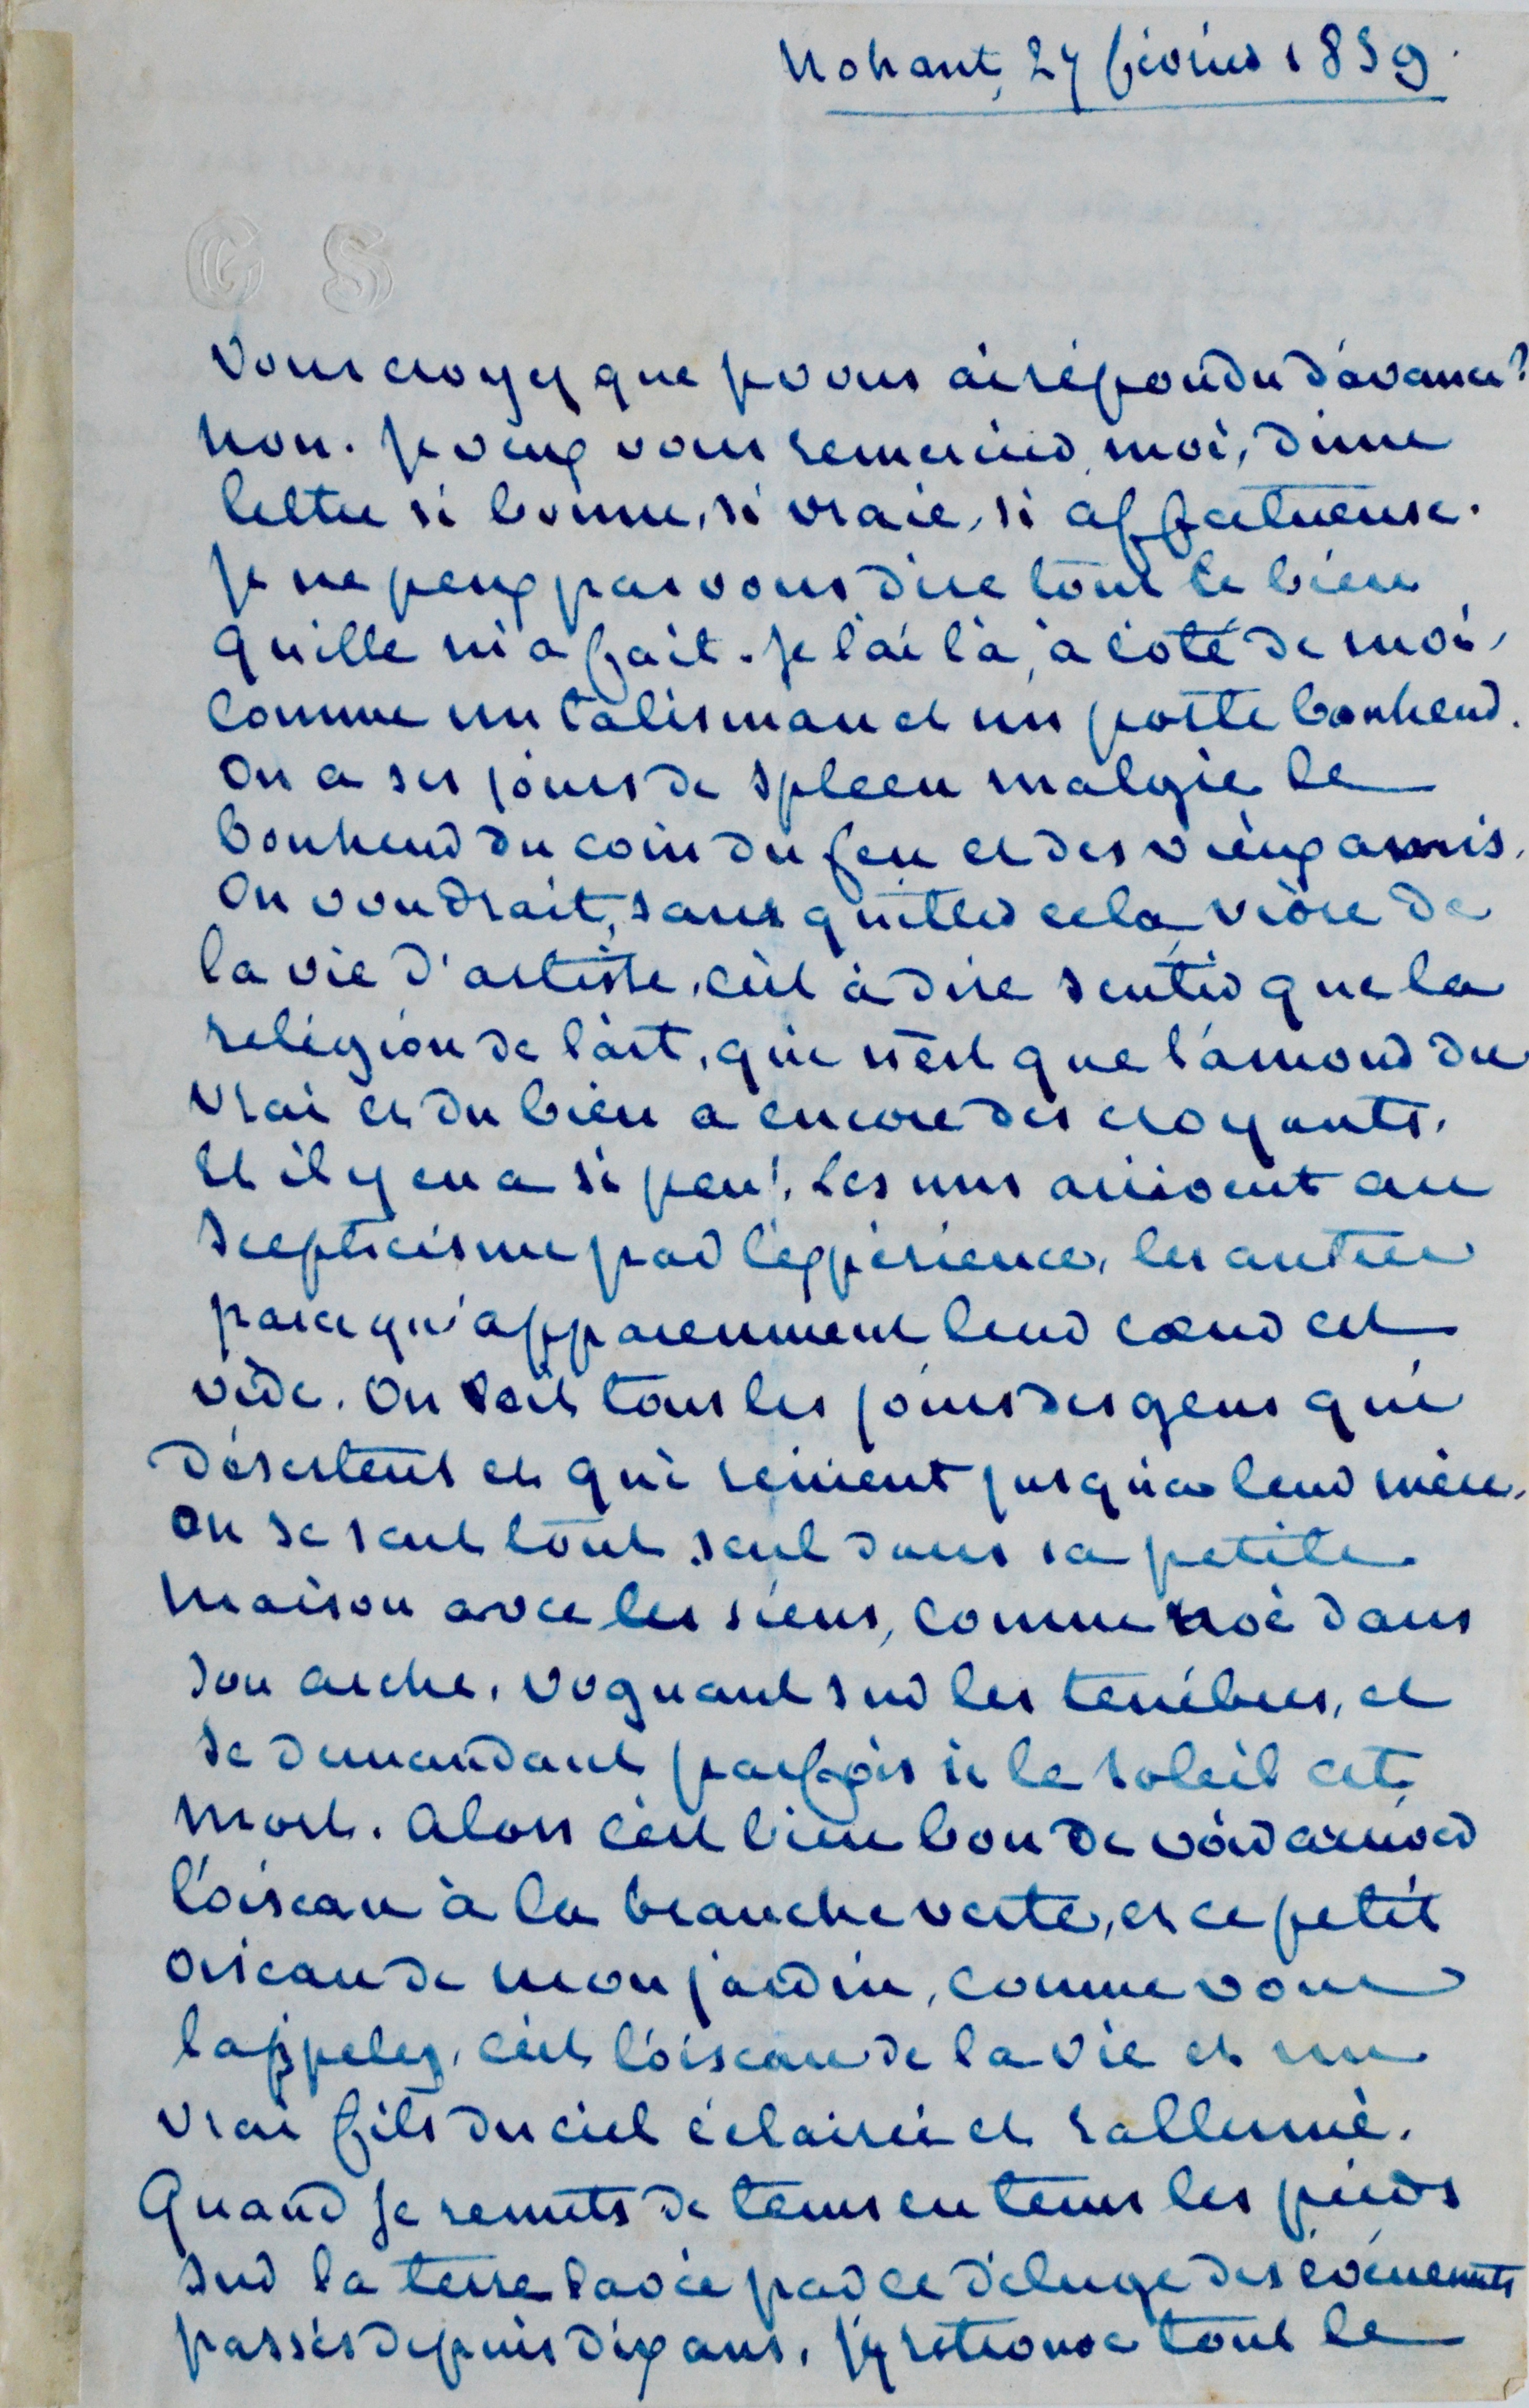 Nohant, 27 février 1859.
G S
Vous croyez que je vous ai répondu d'avance?
Non. Je veux vous remercier, moi, d'une
lettre si bonne, si vraie, si affectueuse.
Je ne peux pas vous dire tout le bien
qu'elle m'a fait. Je l'ai là, à côté de moi,
comme un talisman et un porte bonheur.
On a ses jours de spleen malgré le
bonheur du coin du feu et des vieux amis.
On voudrait, sans quitter cela, vivre de
la vie d'artiste, c'est à dire sentir que la
religion de l'art, qui n'est que l'amour du
vrai et du bien a encore des croyants.
Et il y en a si peu! Les uns arrivent au
scepticisme par l'expérience, les autres
parce qu'apparemment leur cœur est
vide. On voit tous les jours des gens qui
désertent et qui renient jusqu'à leur mère.
On se sent tout seul dans sa petite
maison avec les siens, comme Noé dans
son arche, voguant sur les ténèbres, et
se demandant parfois si le soleil est
mort. Alors c'est bien bon de voir arriver
l'oiseau à la branche verte, et ce petit
oiseau de mon jardin, comme vous
l'appelez, c'est l'oiseau de la vie et un
vrai fils du ciel éclairé et rallumé.
Quand je remets de tems en tems les pieds
sur la terre lavée par ce déluge des évènemts
passés depuis dix ans, j'y retrouve tout le